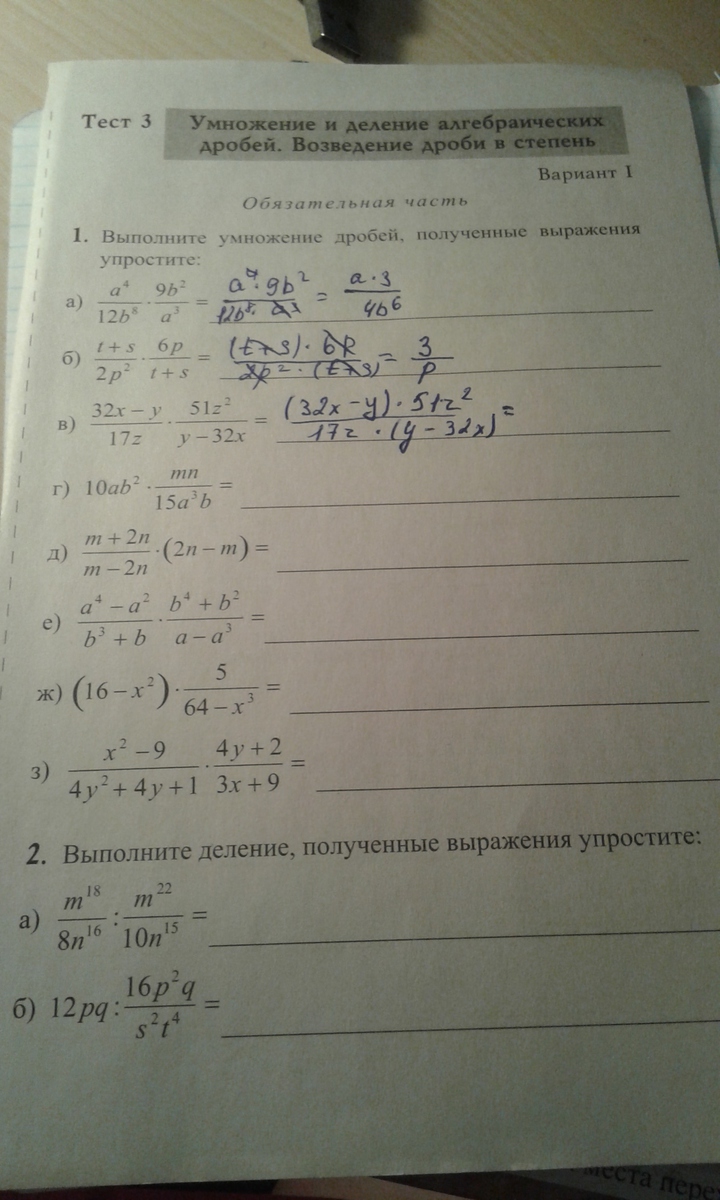 Тест 3
Умножение и деление алгебраических
дробей. Возведение дроби в степень
Вариант I
Обязательная часть
1. Выполните умножение дробей, полученные выражения
упростите:
а) a⁴/12b⁸ · 9b²/a³ = a⁴·9b²/12b⁸·a³ = a·3/4b⁶
б) t+s/2p² · 6p/t+s = (t+s)·6p/2p²·(t+s) = 3/p
в) 32x−y/17z · 51z²/y−32x = (32x−y)·51z²/17z·(y−32x) =
г) 10ab² · mn/15a³b =
д) m+2n/m−2n · (2n−m) =
е) a⁴−a²/b³+b · b⁴+b²/a−a³ =
ж) (16−x²) · 5/64−x³ =
з) x²−9/4y²+4y+1 · 4y+2/3x+9 =
2. Выполните деление, полученные выражения упростите:
а) m¹⁸/8n¹⁶ : m²²/10n¹⁵ =
б) 12pq : 16p²q/s²t⁴ =
места